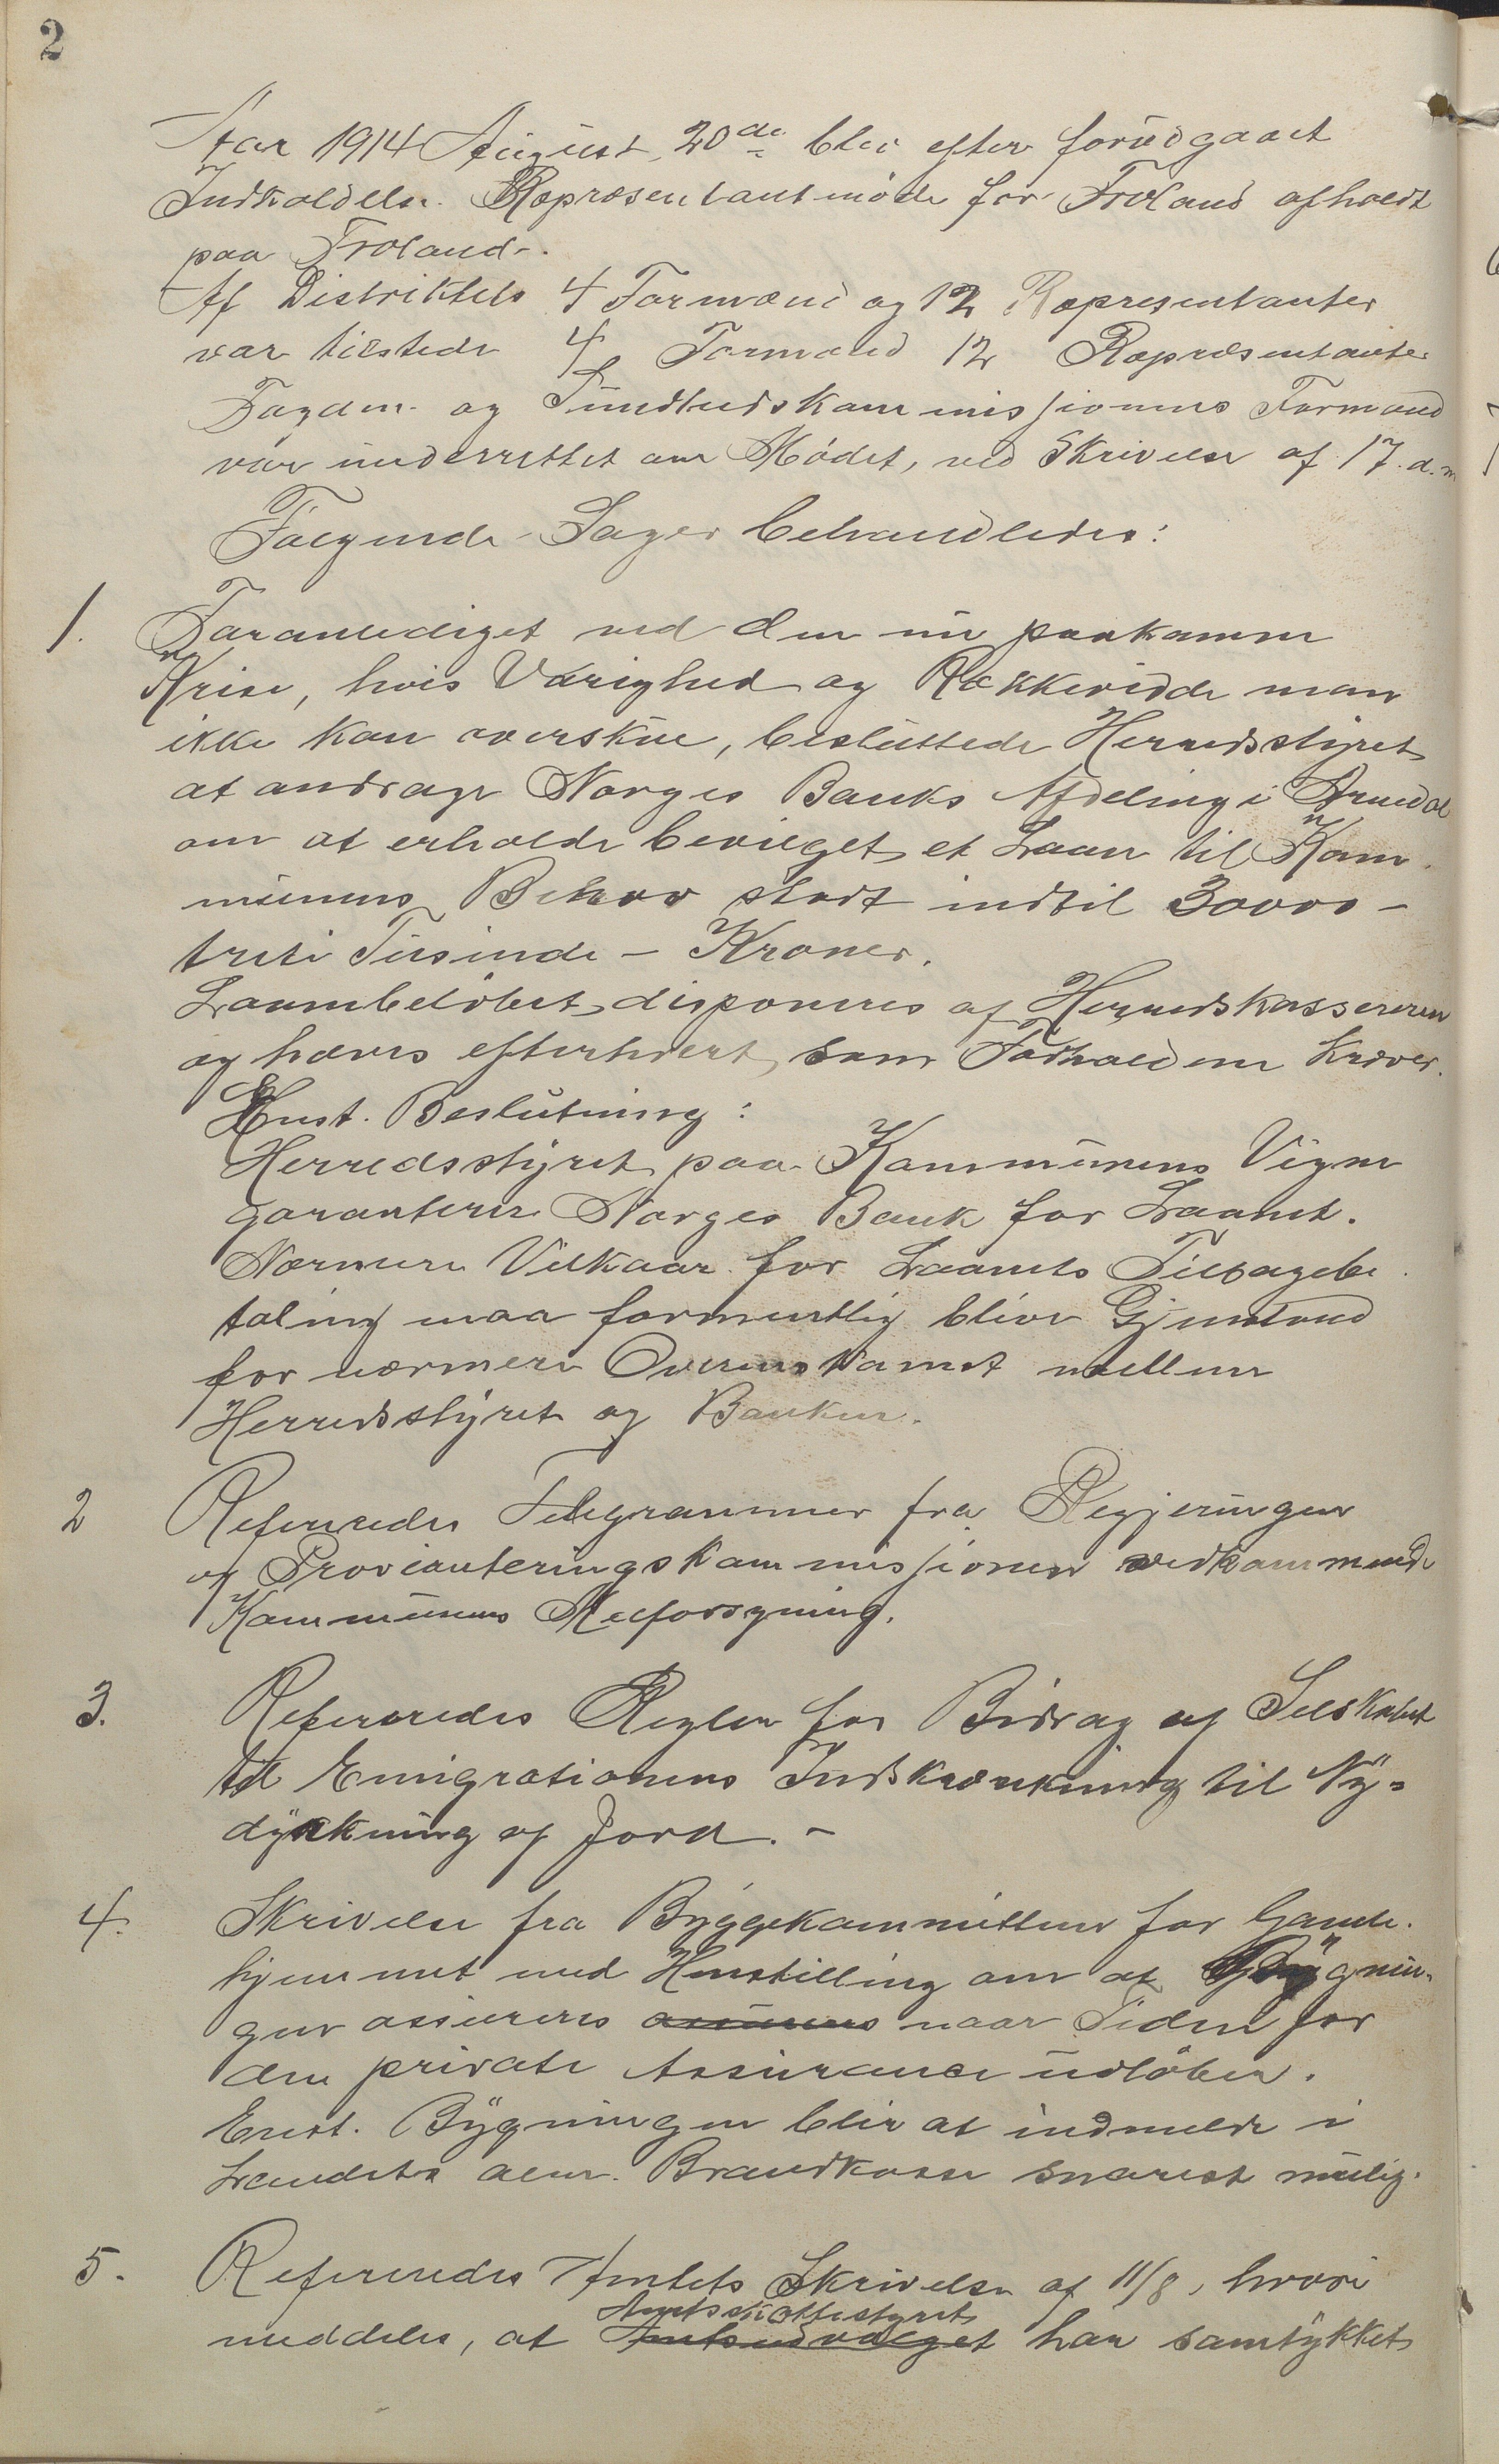 2
Aar 1914 August 20de blev efter forudgaaet
Indkaldelse Repræsentantmøde for Froland afholdt
paa Froland.
Af Distriktets 4 Formænd og 12 Repræsentanter
var tilstede 4 Formænd 12 Repræsentanter
Fogden og Sundhedskommissionens Formand
var underrettet om Mødet, ved Skrivelse af 17. d.m
Følgende Sager behandledes:
1. Foranlediget ved den nu paakomne
Krise, hvis Varighed og Rækkevidde man
ikke kan overskue, besluttede Herredsstyret
at andrage Norges Banks Afdeling i Arendal
om at erholde bevilget et Laan til Kom-
munens Behov stort indtil 30000 -
treti Tusinde - Kroner.
Laanebeløbet disponeres af Herredskassereren
og hæves efterhvert som Forholdene kræver.
Enst. Beslutning:
Herredsstyret paa Kommunens Vegne
garanterer Norges Bank for Laanet.
Nærmere Vilkaar for Laanets Tilbagebe-
taling maa formentlig blive Gjenstand
for nærmere Overenskomst mellem
Herredsstyret og Banken.
2 Refereredes Telegrammer fra Regjeringen
og Provianteringskommissionen vedkommende
Kommunens Melforsyning.
3. Refereredes Regler for Bidrag af Selskabet
til Emigrationens Indskrænkning til Ny-
dyrkning af Jord. -
4. Skrivelse fra Byggekommitteen for Gamle-
hjemmet med Henstilling om at Bygnin-
gen assureres assureres naar Tiden for
den private Assurance udløber.
Enst. Bygningen blir at indmelde i
Landets alm. Brandkasse snarest mulig.
5. Refereredes Amtets Skrivelse af 11/8, hvori
Amtsskattestyret
meddeles, at Amtsudvalget har samtykket